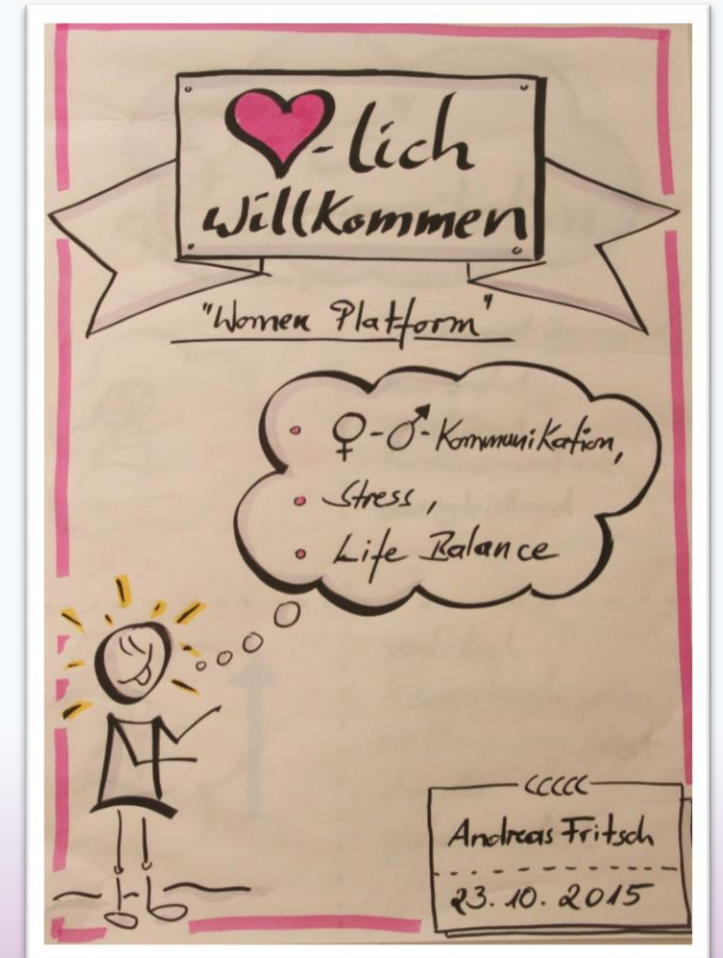 ♥-lich
Willkommen
"Women Platform"
• ♀-♂-Kommunikation,
• Stress,
• Life Balance
Andreas Fritsch
23.10.2015